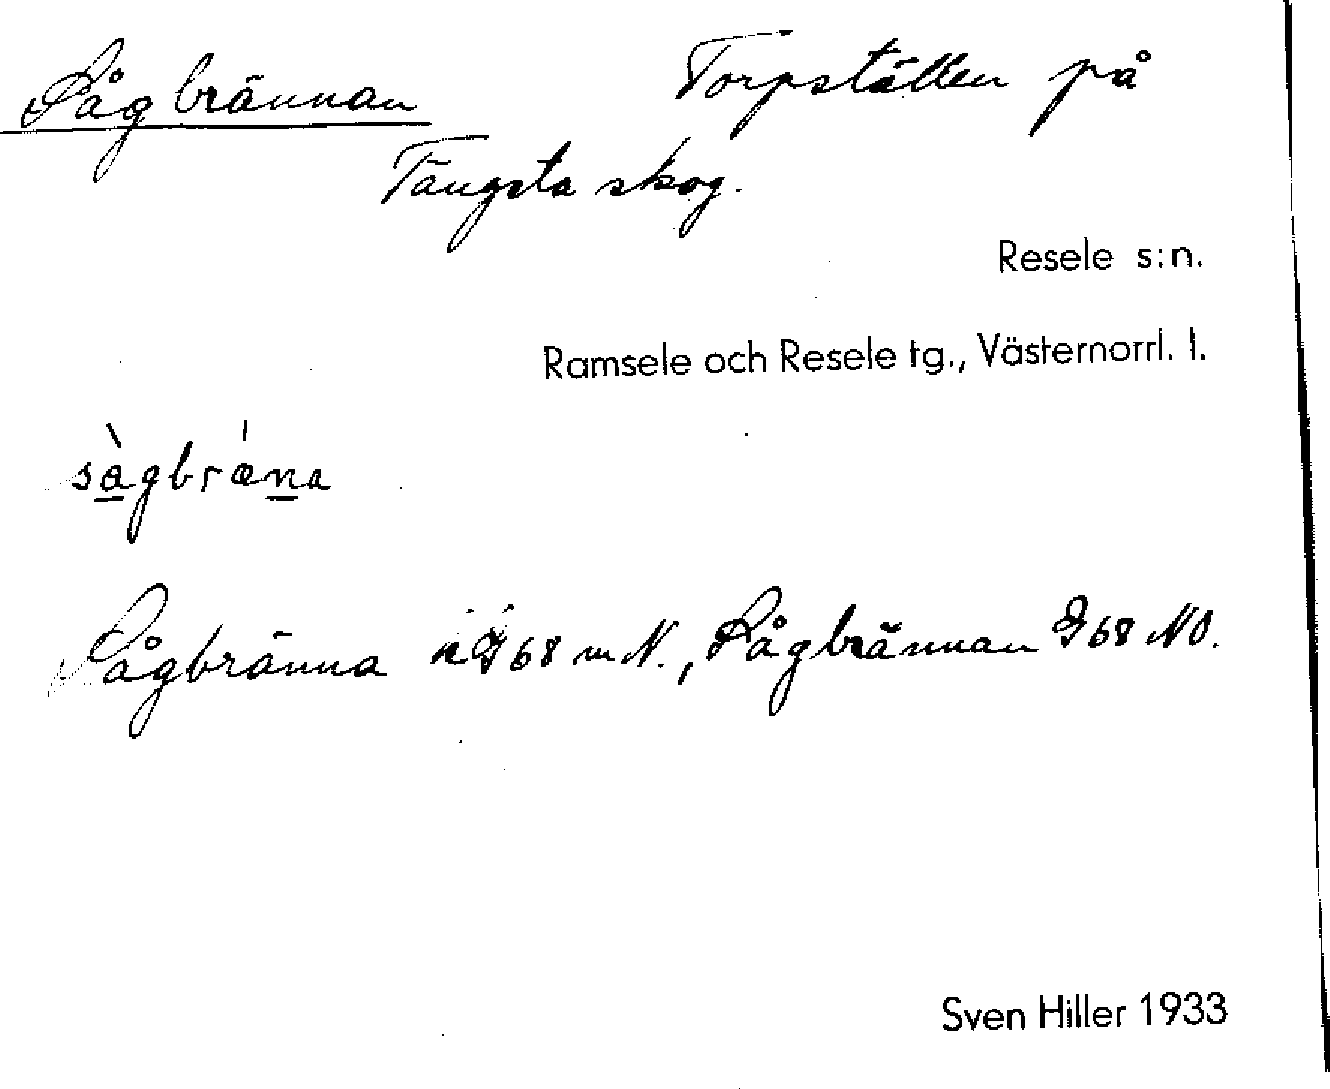 Sågbrännan Torpställen på
Tängsta skog.
Resele s:n.
Ramsele och Resele tg., Västernorrl. l.
sàgbrǽna
Sågbränna G68 m N., Sågbrännan G68 NO.
Sven Hiller 1933